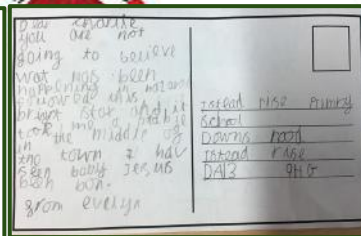 Dear Charlie
you are not
going to believe
wat has been
happening in
I followed this
bright star and it
took me a stable
in the middle of
the town I hav
seen baby Jesus
been bon.
from evelyn
Istead rise primary
School
Downs road
Istead rise
DA13 9HG